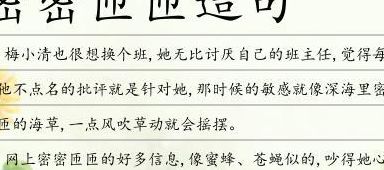 密密匝匝造句
梅小清也很想换个班,她无比讨厌自己的班主任,觉得每
他不点名的批评就是针对她,那时候的敏感就像深海里密
匝的海草,一点风吹草动就会摇摆。
网上密密匝匝的好多信息,像蜜蜂、苍蝇似的,吵得她心